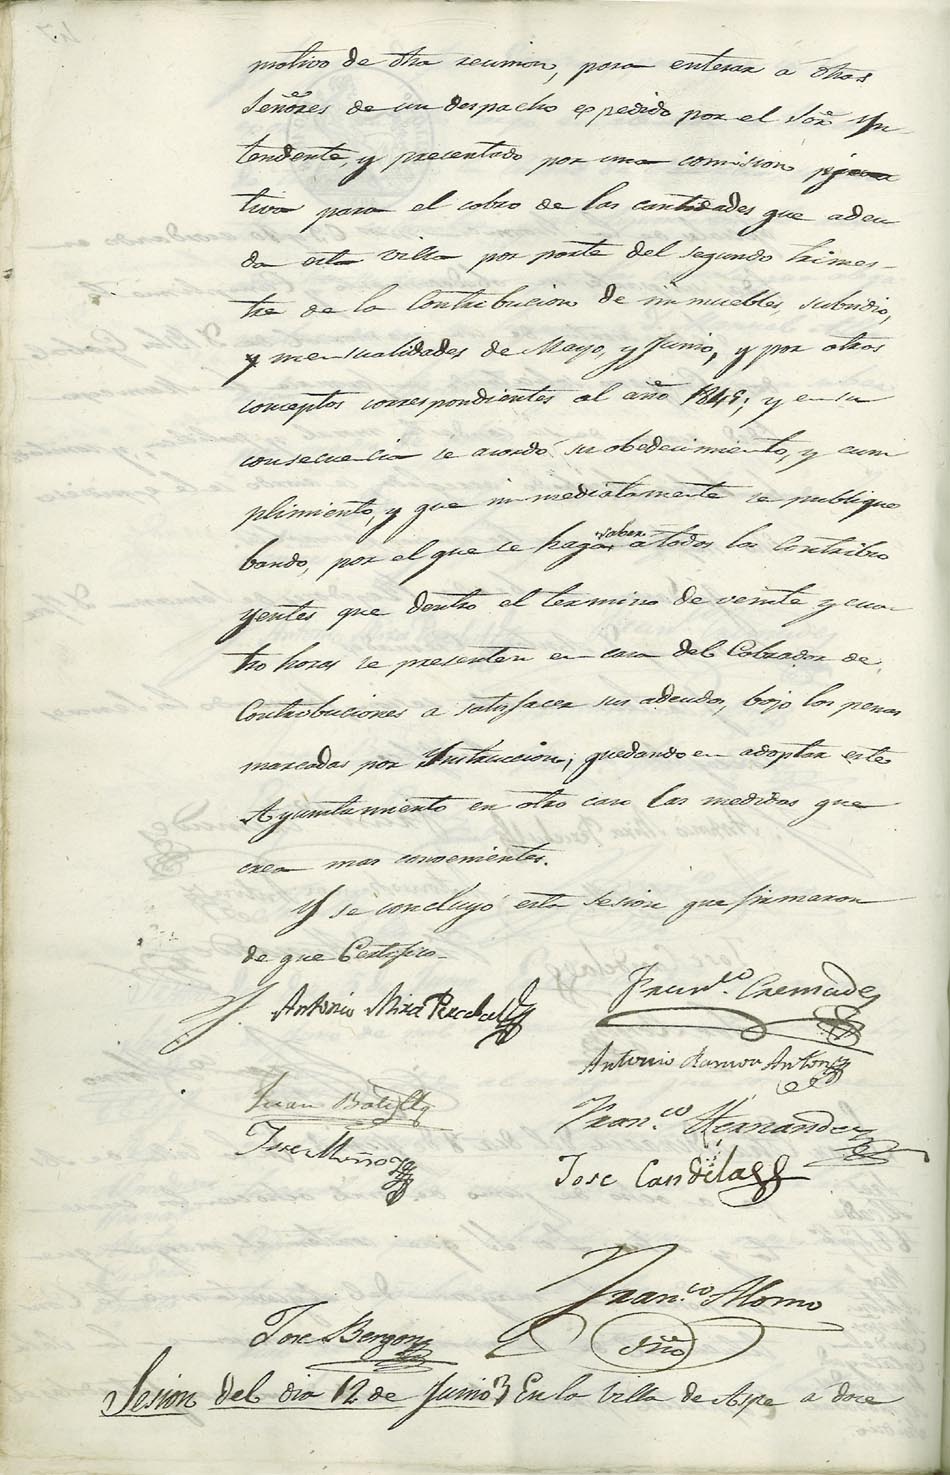 motivo de dha reunion, para enterar á dhos
Señores de un despacho expedido por el Sor Yn
tendente, y presentado por una comision ejecu
tiva para el cobro de las cantidades que adeu
da esta villa por parte del segundo trimes-
tre de la Contribucion de inmuebles, subsidio,
y mensualidades de Mayo, y Junio, y por otros
conceptos correspondientes al año 1845; y en su
consecuencia se acordó su obedecimiento, y cum
plimiento, y que inmediatamente se publique
bando, por el que se haga saber a todos los Contribu
yentes que dentro el termino de veinte y cua
tro horas se presenten en casa del Cobrador de
Contribuciones a satisfacer sus adeudos, bajo las penas
marcadas por Ynstruccion; quedando en adoptar este
Ayuntamiento en otro caso las medidas que
crea mas convenientes.
Y se concluyó esta sesion que firmaron
de que Certifico.
Antonio Mira Perceval
Franco. Cremades
Antonio Ramon Anton
Juan Botella
Franco. Hernandez
Jose Muñoz
Jose Candela
Franco Alonso
Jose Bergon
Srio
Sesion del dia 12 de Junio } En la Villa de Aspe a doce